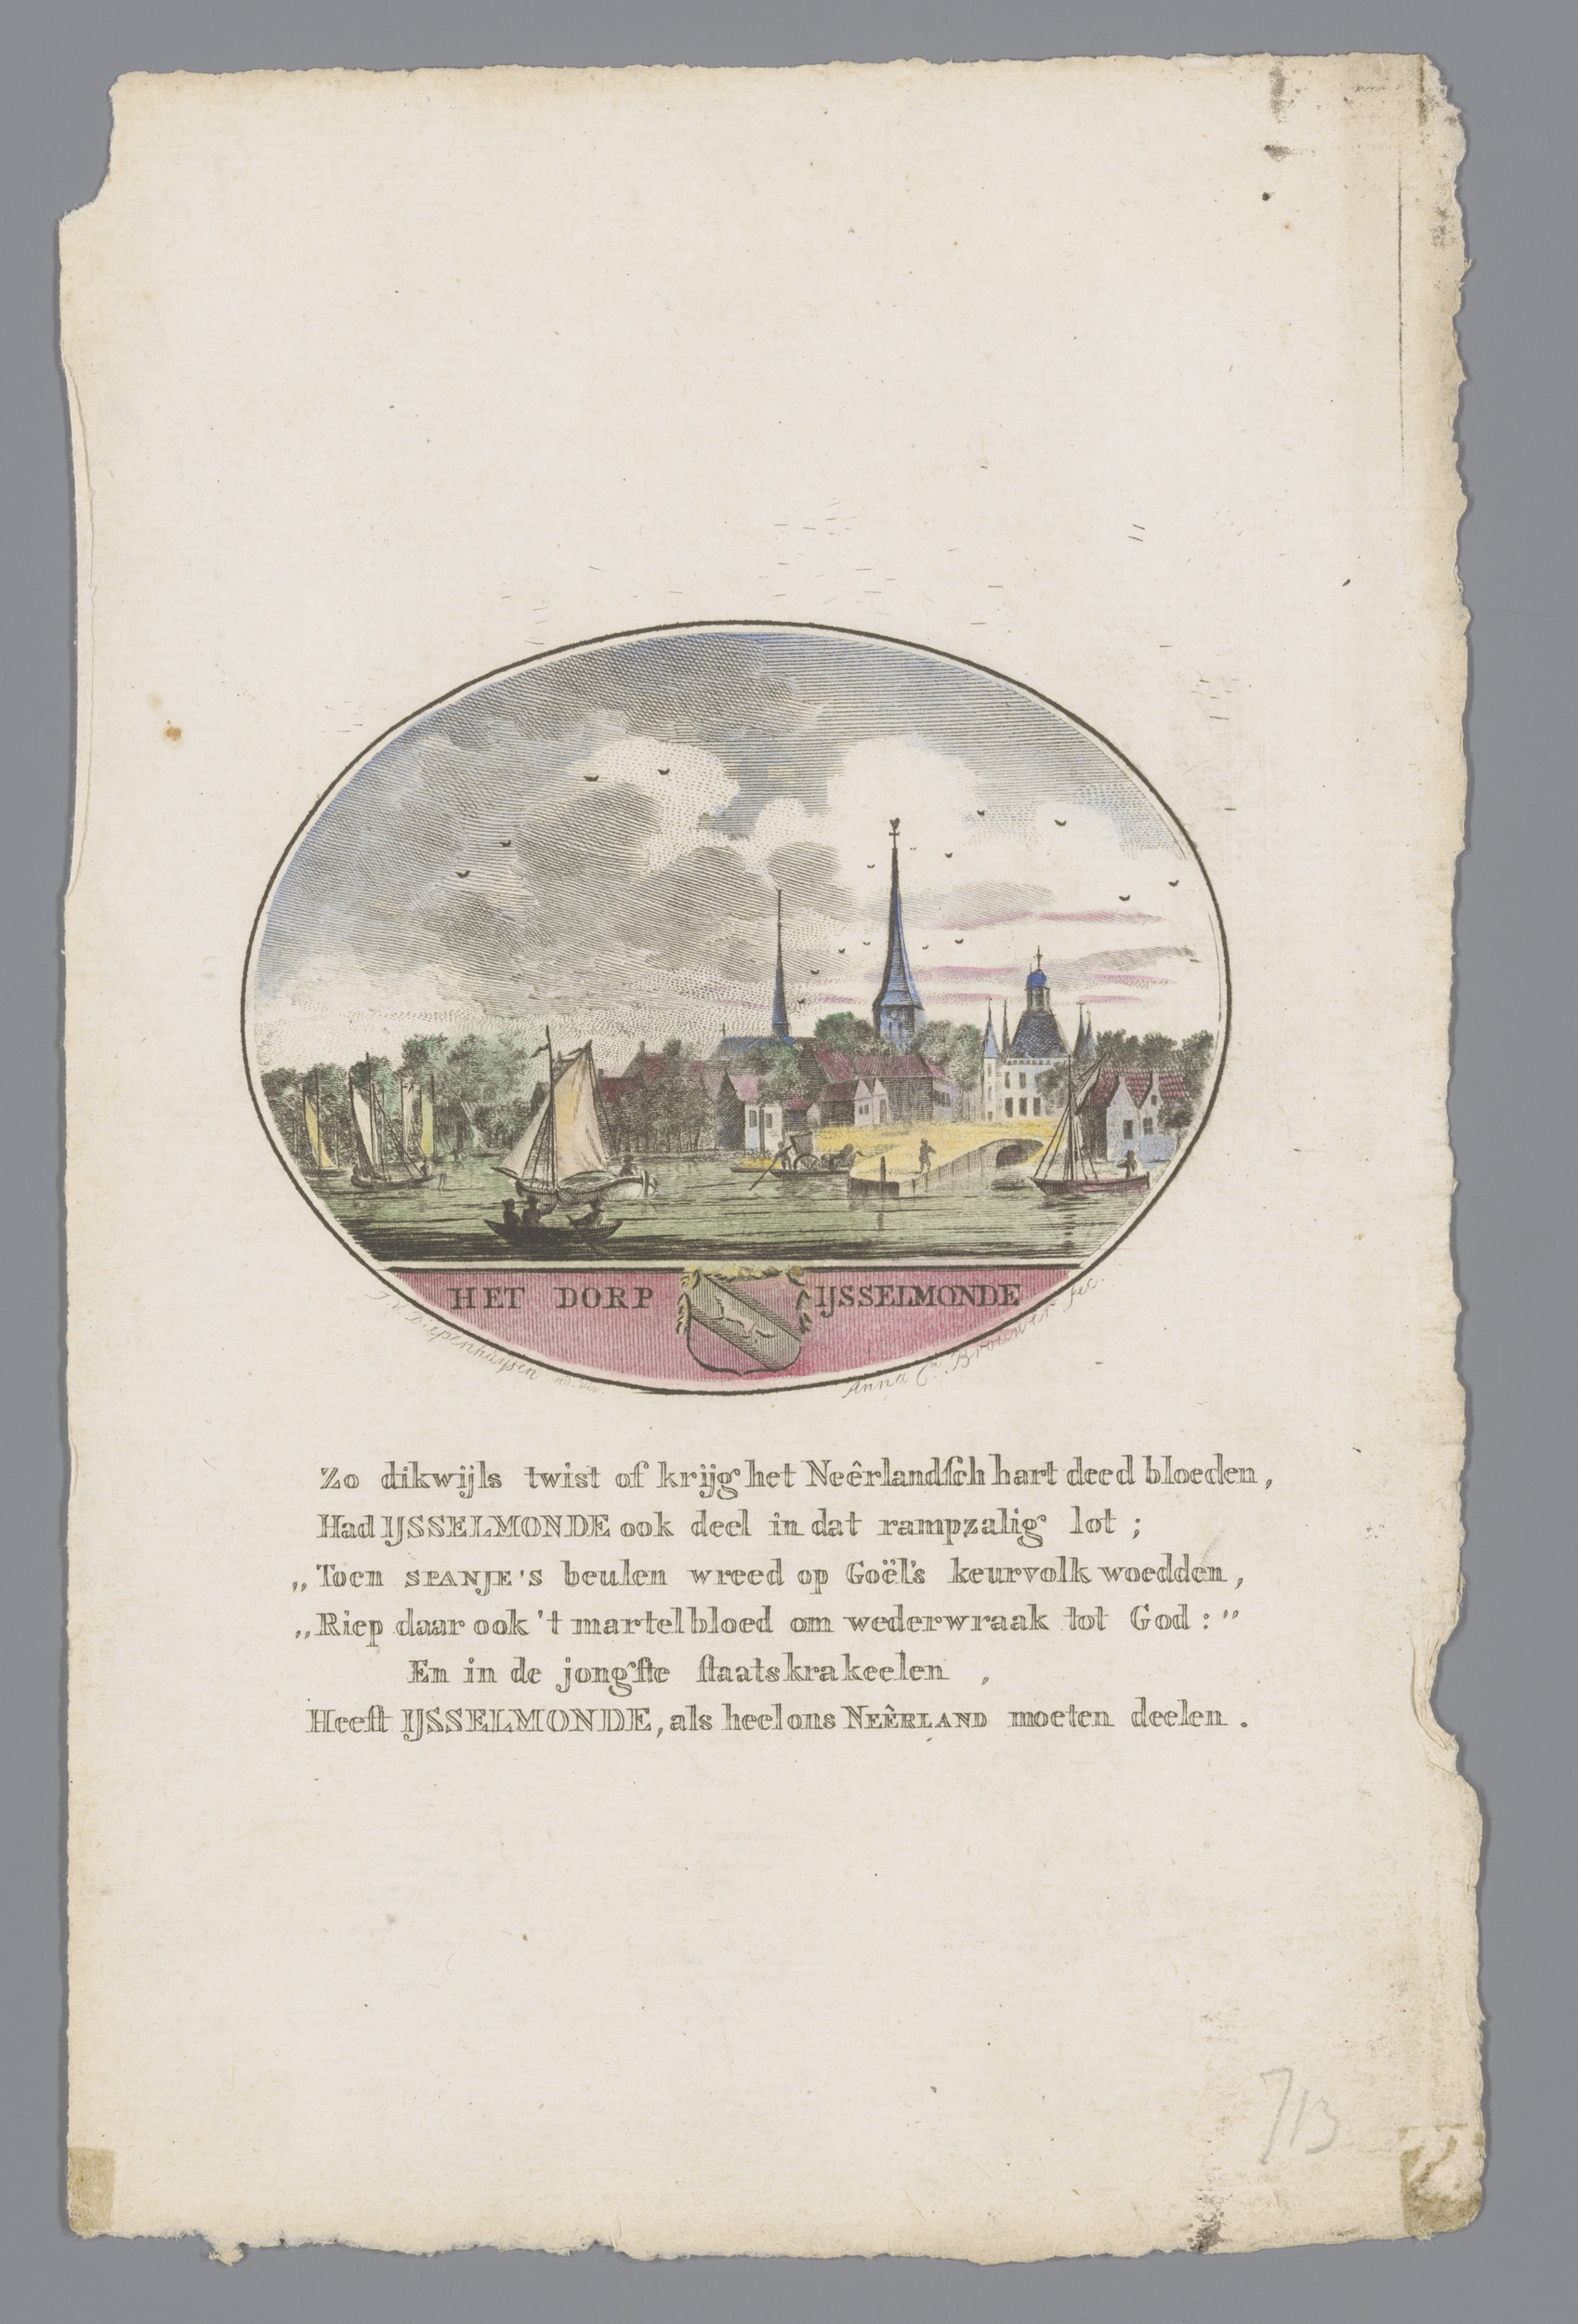 HET DORP IJSSELMONDE
J. v. Diepenhuysen ad. viv.
Anna Cª. Brouwer fec.
Zo dikwijls twist of krijg het Neêrlandſch hart deed bloeden,
Had IJSSELMONDE ook deel in dat rampzalig lot ;
„Toen SPANJE'S beulen wreed op Goël's keurvolk woedden,
„Riep daar ook 't martelbloed om wederwraak tot God :”
En in de jongſte ſtaatskrakeelen ,
Heeft IJSSELMONDE, als heel ons NEÊRLAND moeten deelen .
713